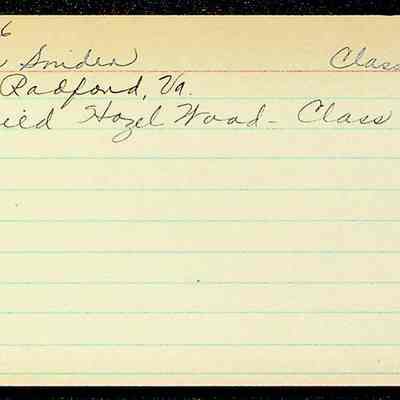 6
Snider Class
Radford, Va.
ield Hazel Wood - Class